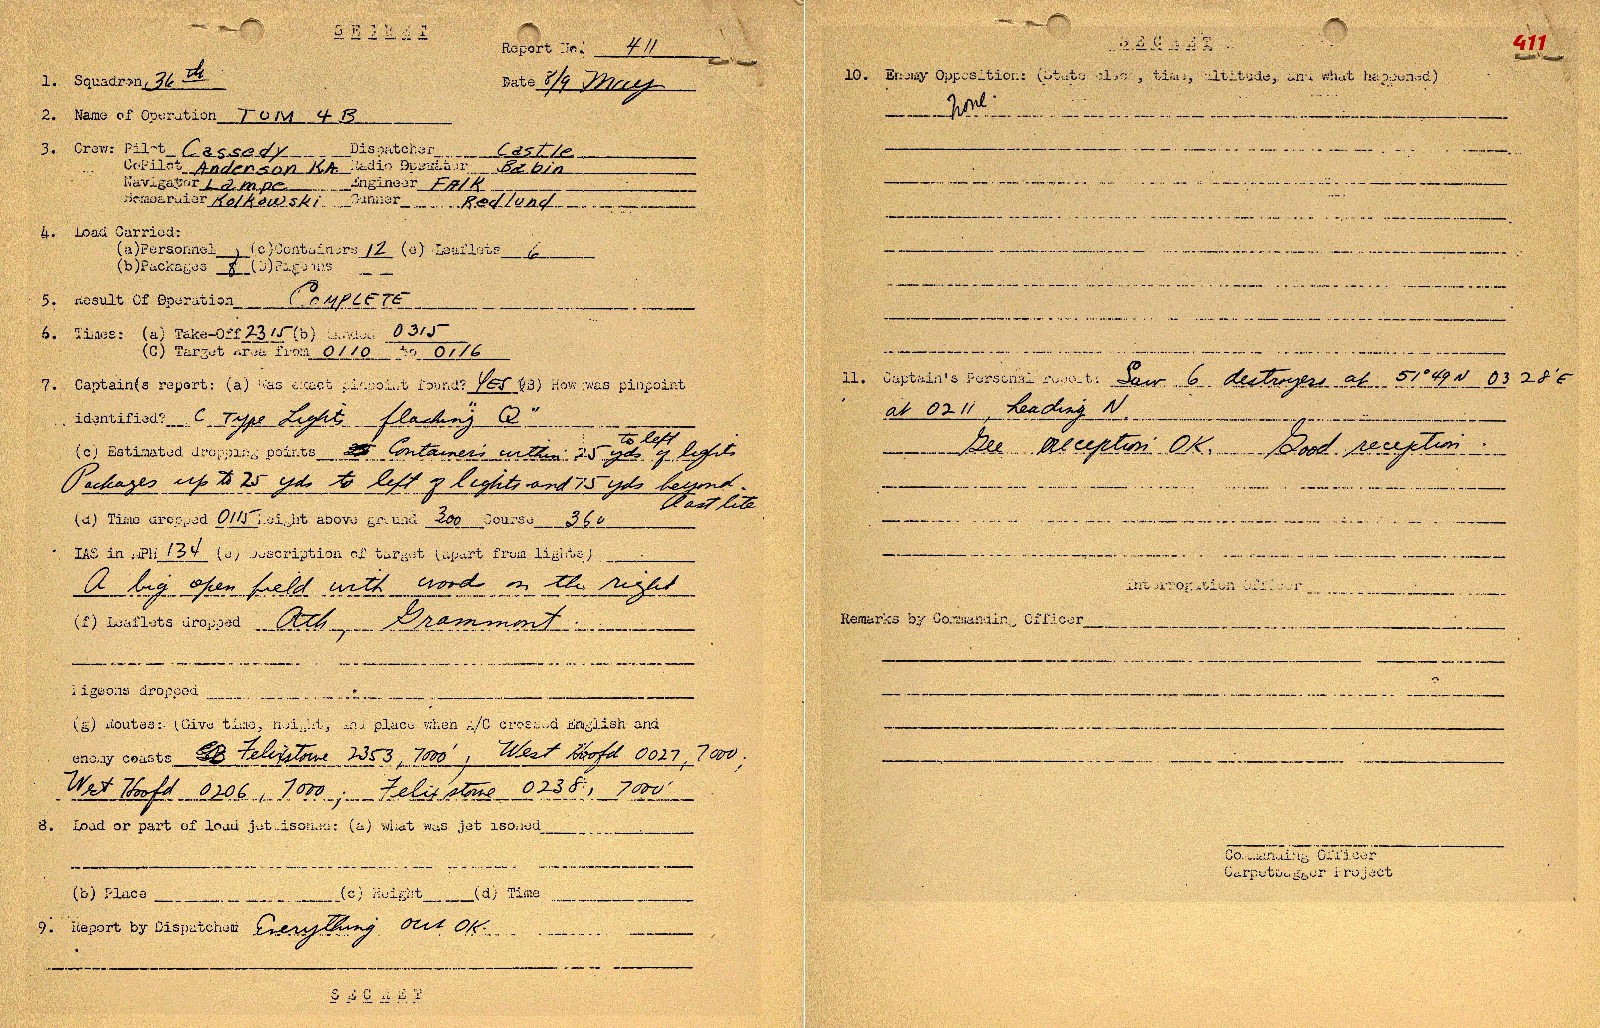 SECRET
Report No. 411
1. Squadron 36th Date 8/9 May
2. Name of Operation TOM 4B
3. Crew: Pilot Cassedy Dispatcher Castle
CoPilot Anderson KA Radio Operator Babin
Navigator Lampe Engineer FALK
Bombardier Kolkowski Gunner Redlund
4. Load Carried:
(a)Personnel (c)Containers 12 (e) Leaflets 6
(b)Packages 8 (D)Pigeons
5. Result Of Operation COMPLETE
6. Times: (a) Take-Off 2315 (b) Landed 0315
(C) Target area from 0110 to 0116
7. Captain(s report: (a) Was exact pinpoint found? YES (B) How was pinpoint
identified? C Type Light flashing "Q"
(c) Estimated dropping points Containers within 25 yds to left of lights
Packages up to 25 yds to left of lights and 75 yds beyond
last lite
(d) Time dropped 0115 Height above ground 300 Course 360
IAS in MPH 134 (e) Description of target (apart from lights)
A big open field with woods on the right
(f) Leaflets dropped Ath, Grammont.
Pigeons dropped
(g) Routes: (Give time, height, and place when A/C crossed English and
enemy coasts Felixstowe 2353, 7000', West Hoofd 0027, 7000;
West Hoofd 0206, 7000; Felixstowe 0238, 7000'
8. Load or part of load jettisoned: (a) what was jettisoned
(b) Place (c) Height (d) Time
9. Report by Dispatcher Everything out OK.
SECRET
SECRET
411
10. Enemy Opposition: (State place, time, altitude, and what happened)
None.
11. Captain's Personal report: Saw 6 destroyers at 51°49N 03 28'E
at 0211, heading N.
Gee reception OK. Good reception.
Interrogation Officer
Remarks by Commanding Officer
Commanding Officer
Carpetbagger Project